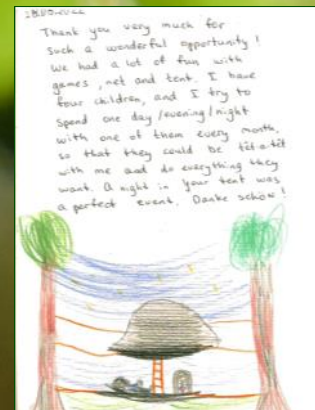 Thank you very much for
such a wonderful opportunity!
We had a lot of fun with
games, net and tent. I have
four children, and I try to
spend one day/evening/night
with one of them every month,
so that they could be tët-a-tët
with me and do everything they
want. A night in your tent was
a perfect event. Danke schön!